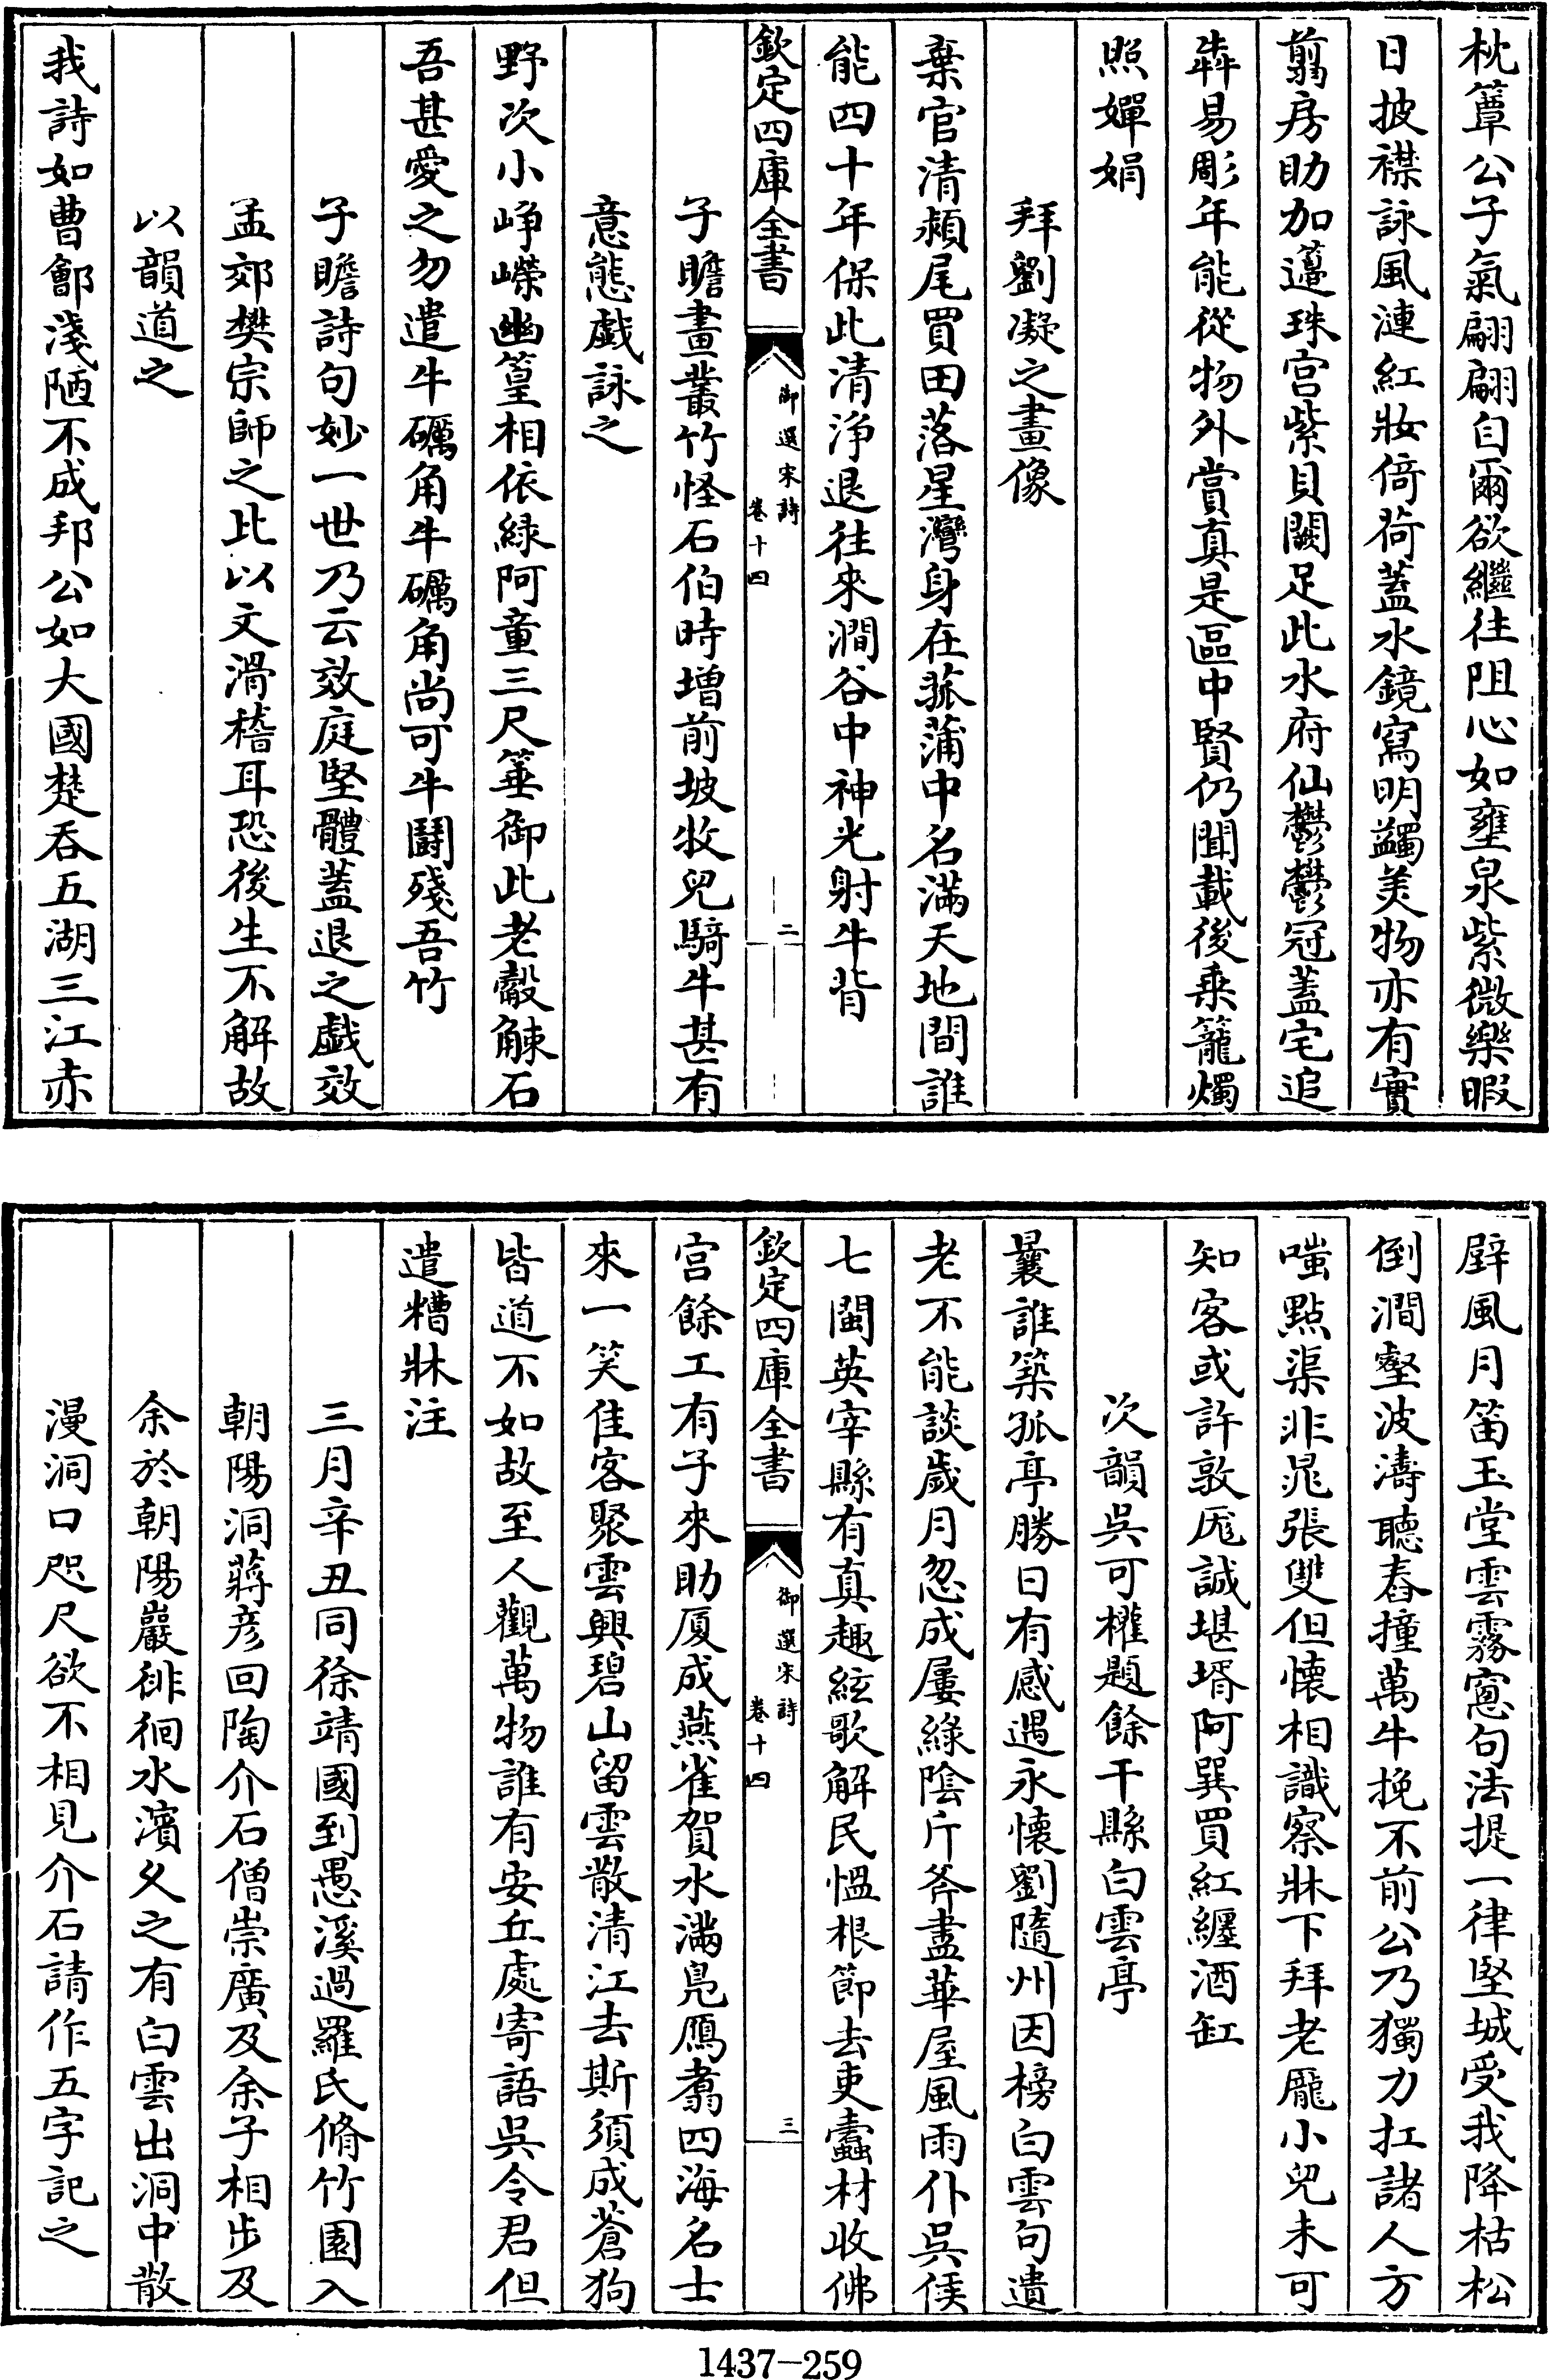 枕簟公子氣翩翩自爾欲繼往阻心如壅泉紫微樂暇
日披襟詠風漣紅妝倚荷蓋水鏡寫明蠲美物亦有實
翦房助加籩珠宫紫貝闕足此水府仙鬱鬱冠蓋宅追
犇易彫年能從物外賞真是區中賢仍聞載後乗籠燭
照嬋娟
拜劉凝之畫像
棄官清潁尾買田落星灣身在菰蒲中名滿天地間誰
能四十年保此清浄退往來澗谷中神光射牛背
欽定四庫全書
御選宋詩
卷十四
二
子瞻畫叢竹怪石伯時增前坡牧兒騎牛甚有
意態戯詠之
野次小峥嶸幽篁相依緑阿童三尺箠御此老觳觫石
吾甚愛之勿遣牛礪角牛礪角尚可牛鬭殘吾竹
子瞻詩句妙一世乃云效庭堅體蓋退之戯效
孟郊樊宗師之比以文滑稽耳恐後生不解故
以韻道之
我詩如曹鄶淺陋不成邦公如大國楚吞五湖三江赤
壁風月笛玉堂雲霧窻句法提一律堅城受我降枯松
倒澗壑波濤聽舂撞萬牛挽不前公乃獨力扛諸人方
嗤點渠非晁張雙但懐相識察牀下拜老龎小兒未可
知客或許敦厖誠堪壻阿巽買紅纒酒缸
次韻吳可權題餘干縣白雲亭
曩誰築孤亭勝日有感遇永懐劉隨州因榜白雲句遺
老不能談歲月忽成屢緑陰斤斧盡華屋風雨仆吳侯
七閩英宰縣有真趣絃歌解民慍根節去吏蠹材收佛
欽定四庫全書
御選宋詩
卷十四
三
宫餘工有子來助厦成燕雀賀水滿鳬鴈翥四海名士
來一笑佳客聚雲興碧山留雲散清江去斯須成蒼狗
皆道不如故至人觀萬物誰有安丘處寄語吳令君但
遣糟牀注
三月辛丑同徐靖國到愚溪過羅氏脩竹園入
朝陽洞蔣彦回陶介石僧崇廣及余子相步及
余於朝陽巖徘徊水濱久之有白雲出洞中散
漫洞口咫尺欲不相見介石請作五字記之
1437-259